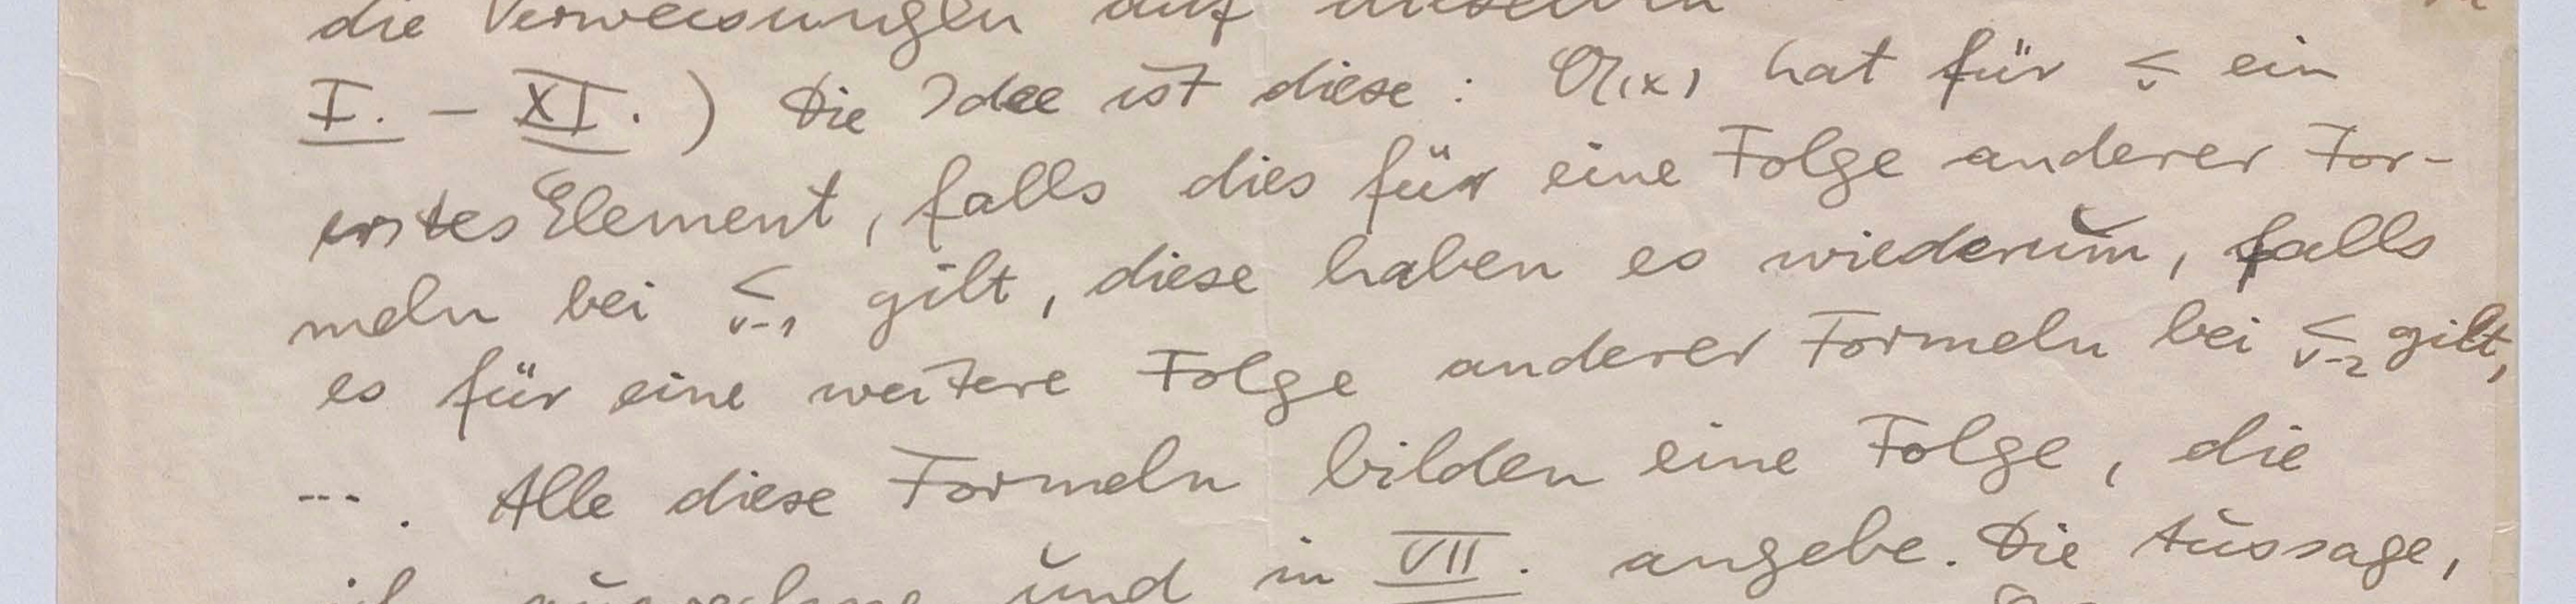 die Verweisungen auf dieselben
I. – XI.) Die Idee ist diese: 𝔄(x) hat für ≤_ν ein
erstes Element, falls dies für eine Folge anderer For-
meln bei ≤_ν-1 gilt, diese haben es wiederum, falls
es für eine weitere Folge anderer Formeln bei ≤_ν-2 gilt,
--- . Alle diese Formeln bilden eine Folge, die
und in VII. angebe. Die Aussage,